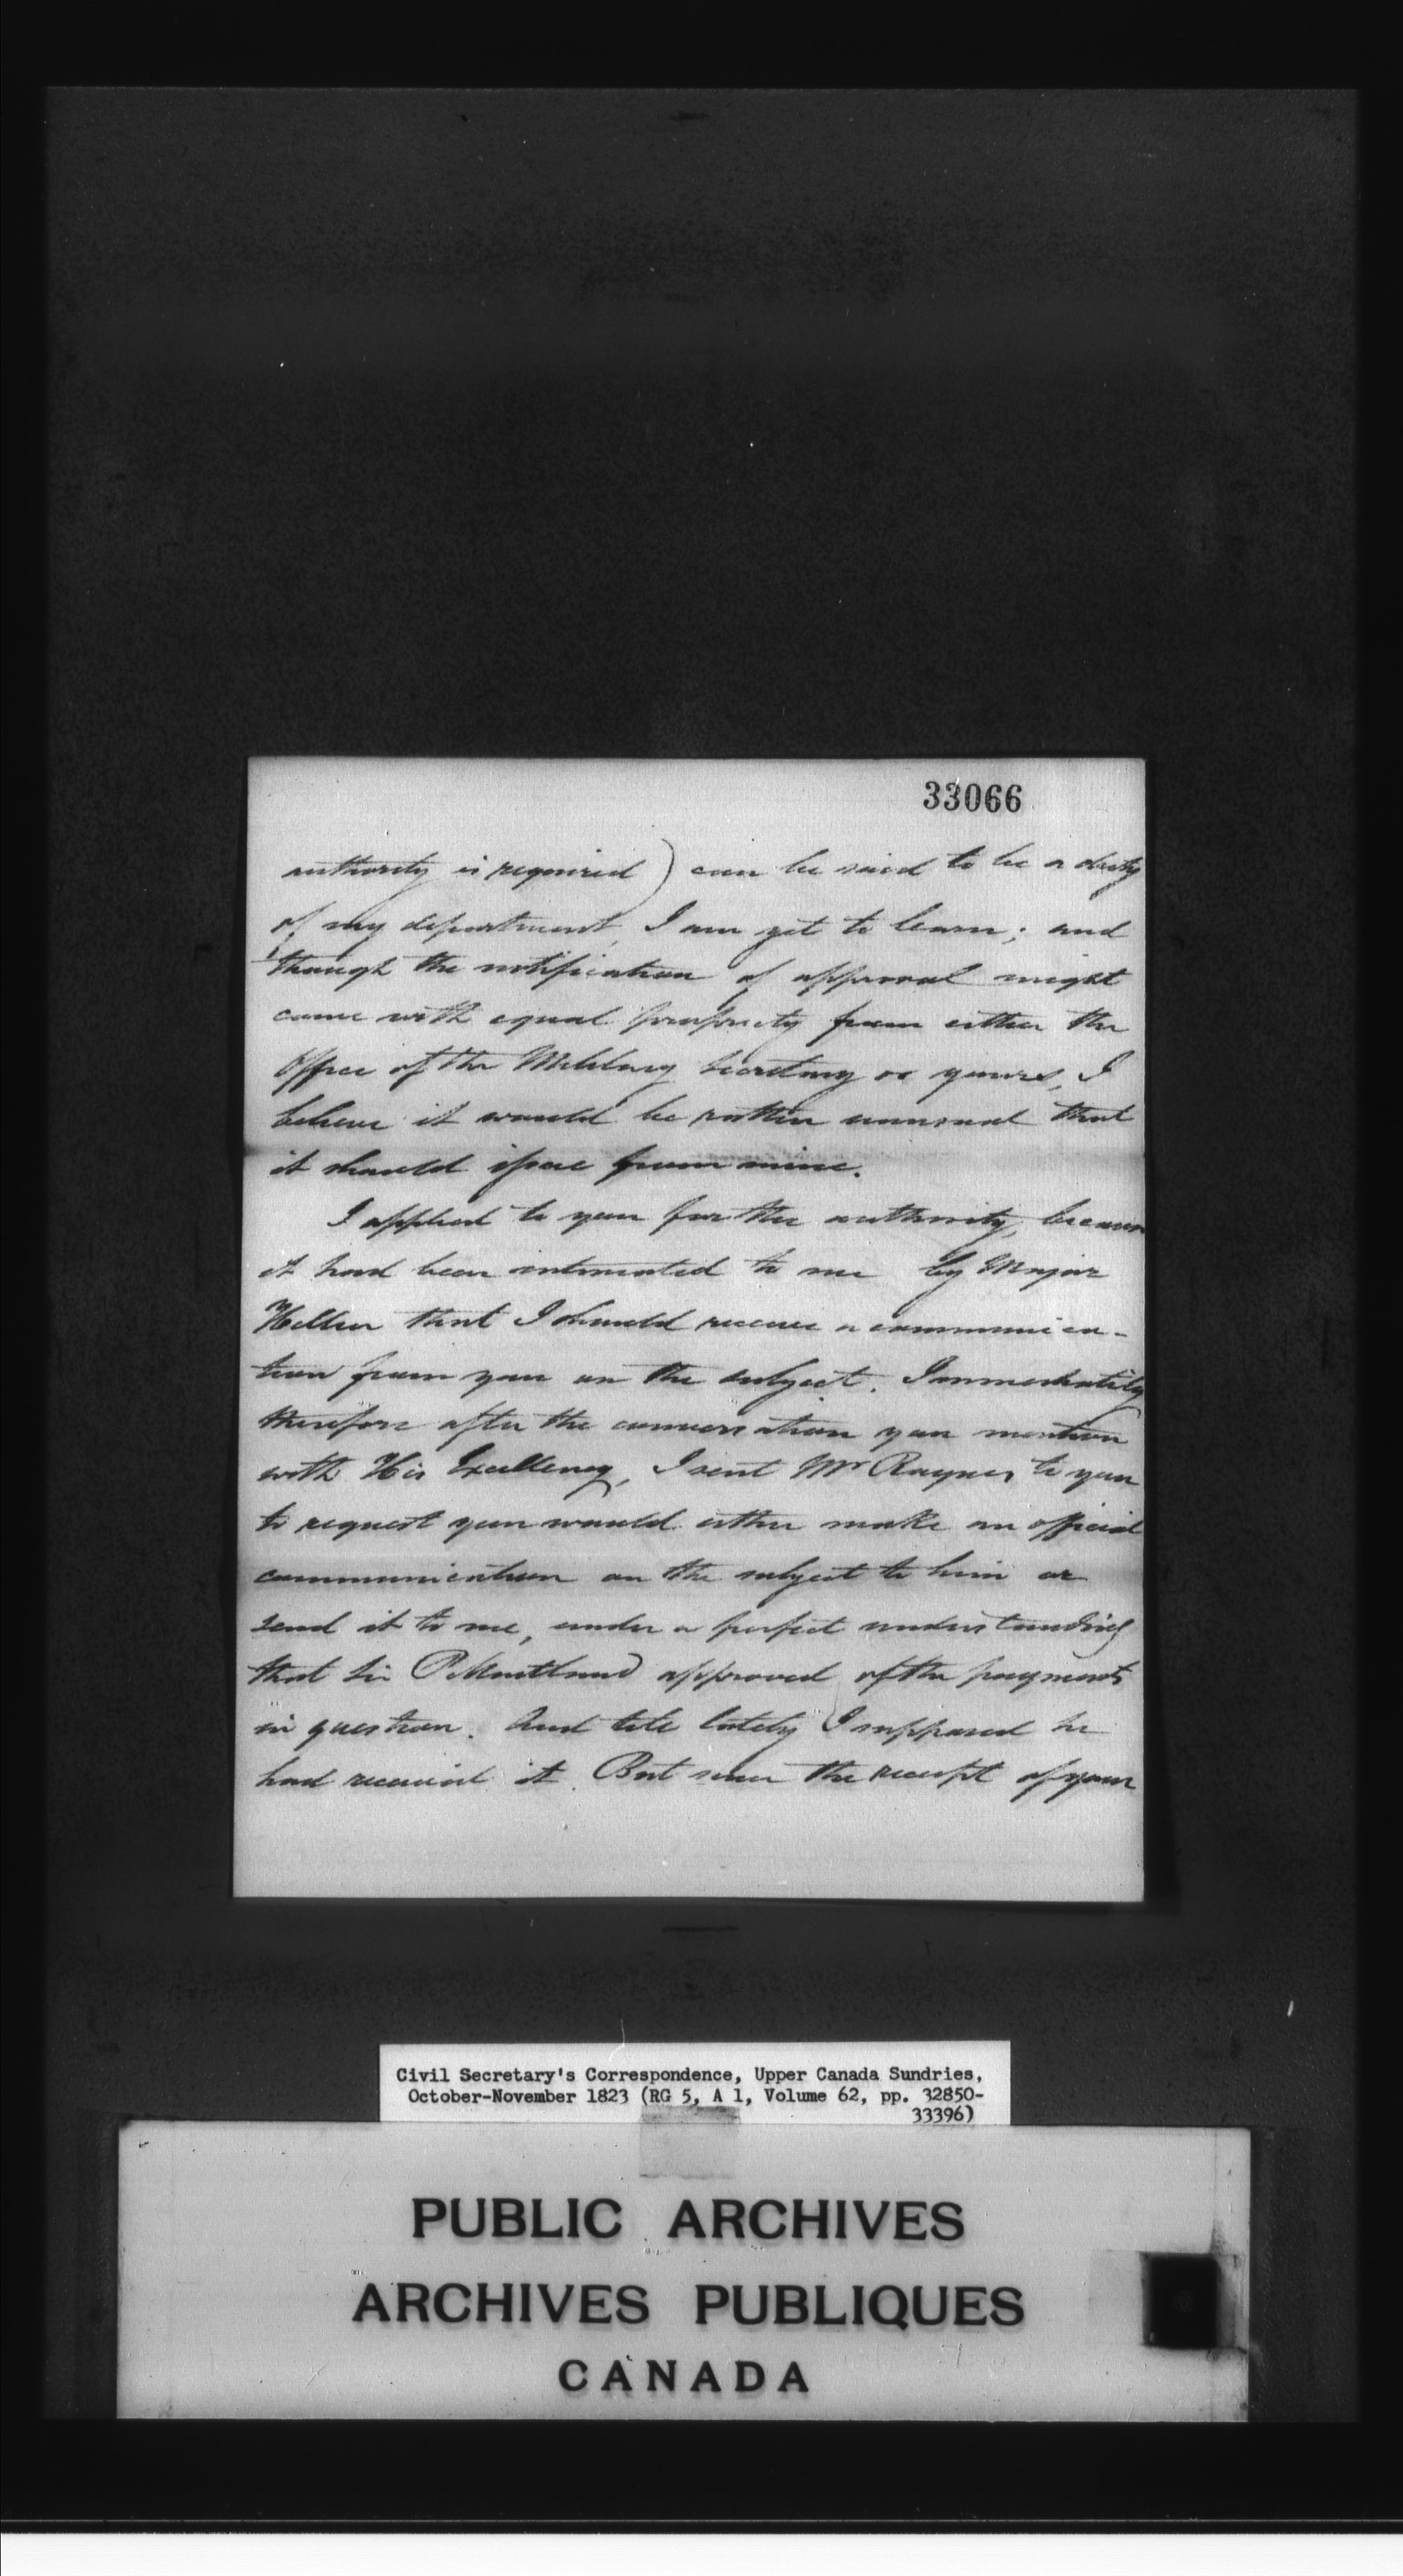 33066
authority is required) can be said to be a duty
of my department, I am yet to learn; and
though the notification of approval might
come with equal propriety from either the
Office of the Military Secretary or yours, I
believe it would be rather unusual that
it should issue from mine.
I applied to you for the authority, because
it had been intimated to me by Major
Hillier that I should receive a communica-
tion from you on the subject. Immediately
therefore after the conversation you mention
with His Excellency, I sent Mr Raynes to you
to request you would either make an official
communication on the subject to him or
send it to me, under a perfect understanding
that Sir P Maitland approved of the payments
in question. And till lately I supposed he
had received it. But since the receipt of your
Civil Secretary's Correspondence, Upper Canada Sundries,
October-November 1823 (RG 5, A 1, Volume 62, pp. 32850-
33396)
PUBLIC ARCHIVES
ARCHIVES PUBLIQUES
CANADA